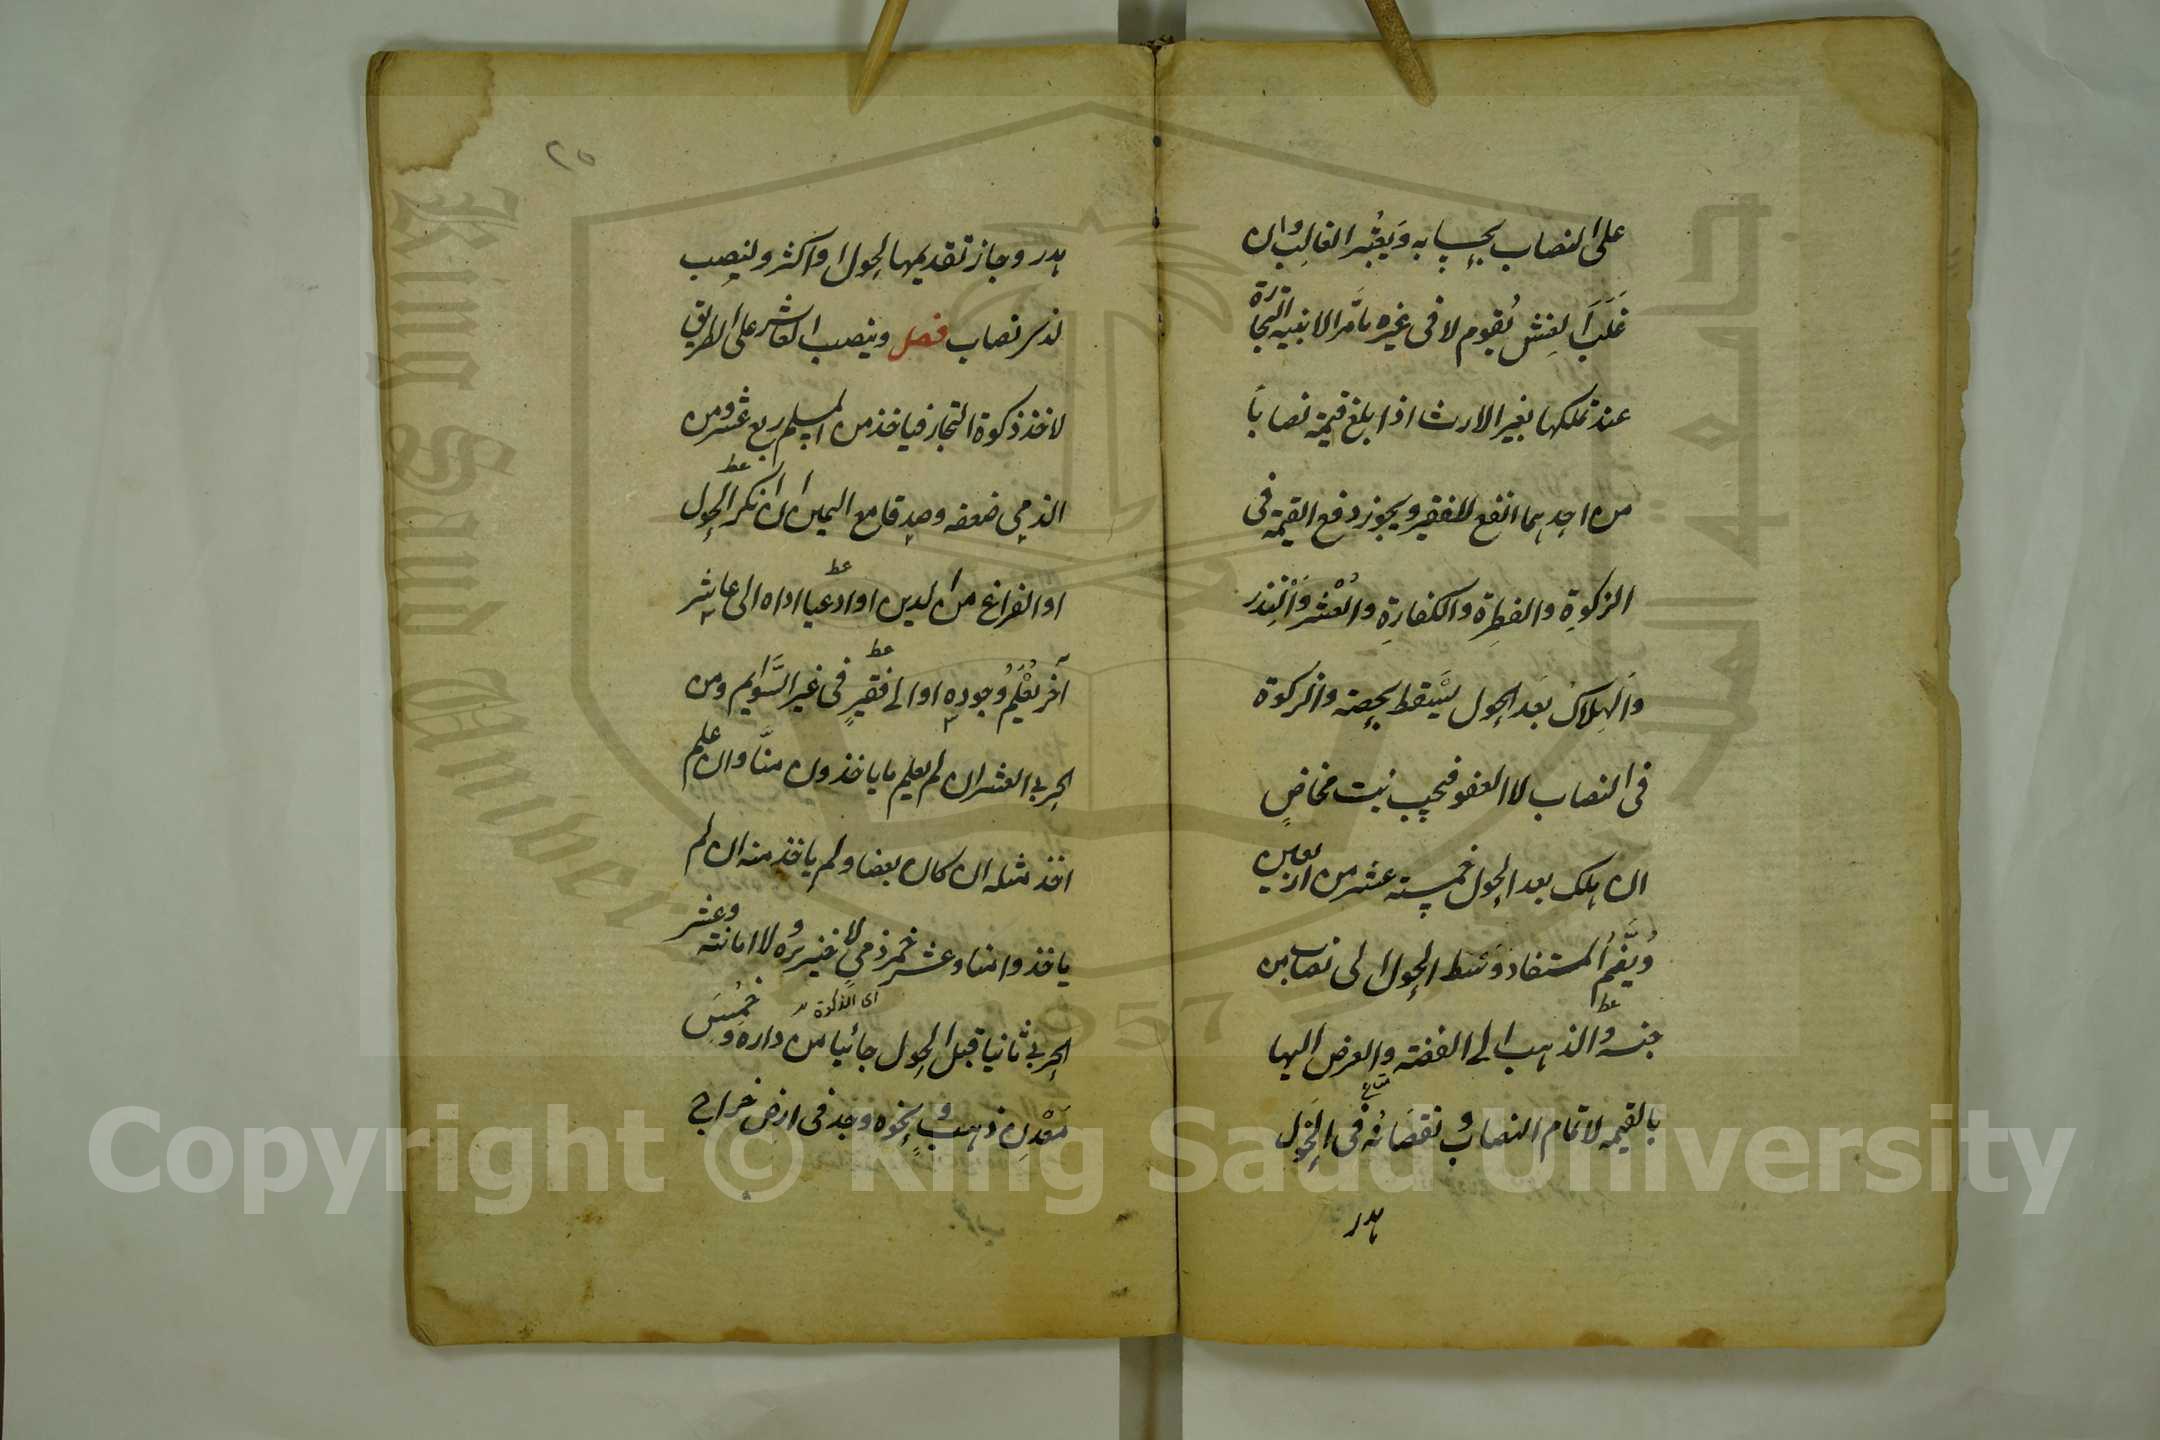 على النصاب بحسابه ويعتبر الغالب وان
غلب الغش يقوم لا في غيره مامر الا بنية التجارة
عند تملكها بغير الارث اذا بلغ قيمته نصابا
من احدهما انفع للفقير ويجوز دفع القيمة في
الزكوة والفطرة والكفارة والعشر والنذر
والهلاك بعد الحول يسقط بحصته والزكوة
في النصاب لا العفو فيجب بنت مخاض
ان هلك بعد الحول خمسة عشر من اربعين
ويضم المستفاد وسط الحول الى نصاب من
جنسه والذهب الى الفضة والعرض اليها
عط
بالقيمة لا تمام النصاب ونقصانه في الحول
هدر
٢٥
هدر وجاز تقديمها لحول او اكثر ولنصب
لذي نصاب فصل وينصب العاشر على الطريق
لاخذ زكوة التجار فياخذ من المسلم ربع عشر ومن
الذمي ضعفه وصدقا مع اليمين ان انكر الحول
عط
او الفراغ من الدين او ادعيا اداه الى عاشر
عط
آخر يعلم وجوده او الى فقير في غير السوايم ومن
عط
الحربي العشر ان لم يعلم ما ياخذون منا وان علم
اخذ مثله ان كان بعضا ولم ياخذ منه ان لم
ياخذوا منا وعشر خمر ذمي لا خنزيره ولا امانته وعشر
الحربي ثانيا قبل الحول جائيا من داره وخمس
معدن ذهب ونحوه وجد في ارض خراج
Copyright © King Saud University
King Saud University
1957